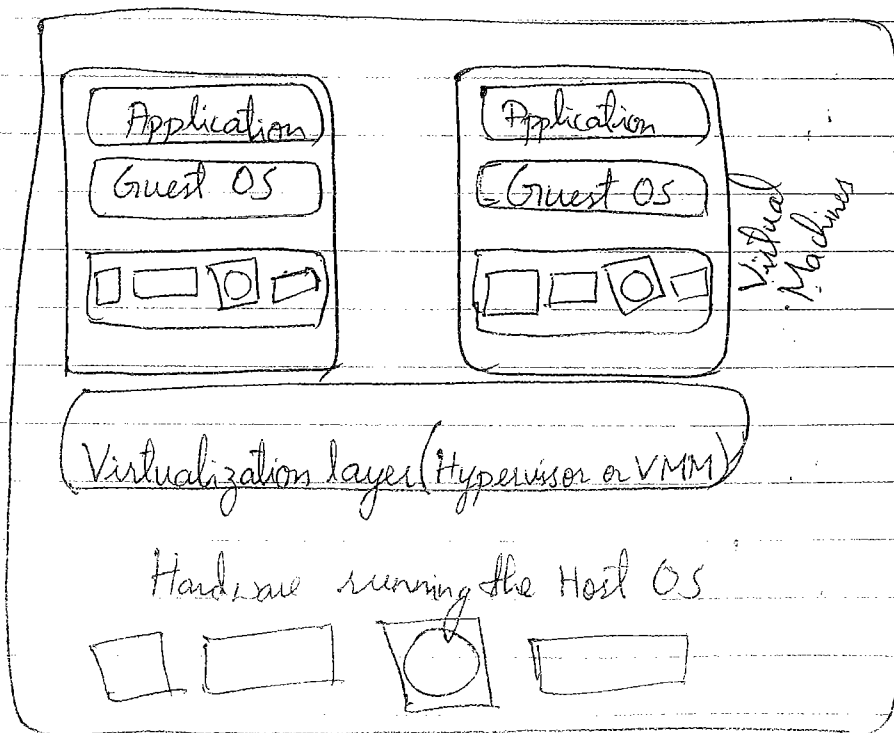 Application
Application
Guest OS
Guest OS
Virtual
Machines
Virtualization layer (Hypervissor or VMM)
Hardware running the Host OS